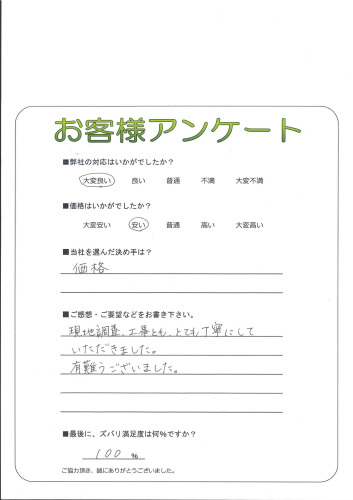 お客様アンケート
■弊社の対応はいかがでしたか？
大変良い 良い 普通 不満 大変不満
■価格はいかがでしたか？
大変安い 安い 普通 高い 大変高い
■当社を選んだ決め手は？
価格
■ご感想・ご要望などをお書き下さい。
現地調査、工事とも、とても丁寧にして
いただきました。
有難うございました。
■最後に、ズバリ満足度は何％ですか？
100 %
ご協力頂き、誠にありがとうございました。